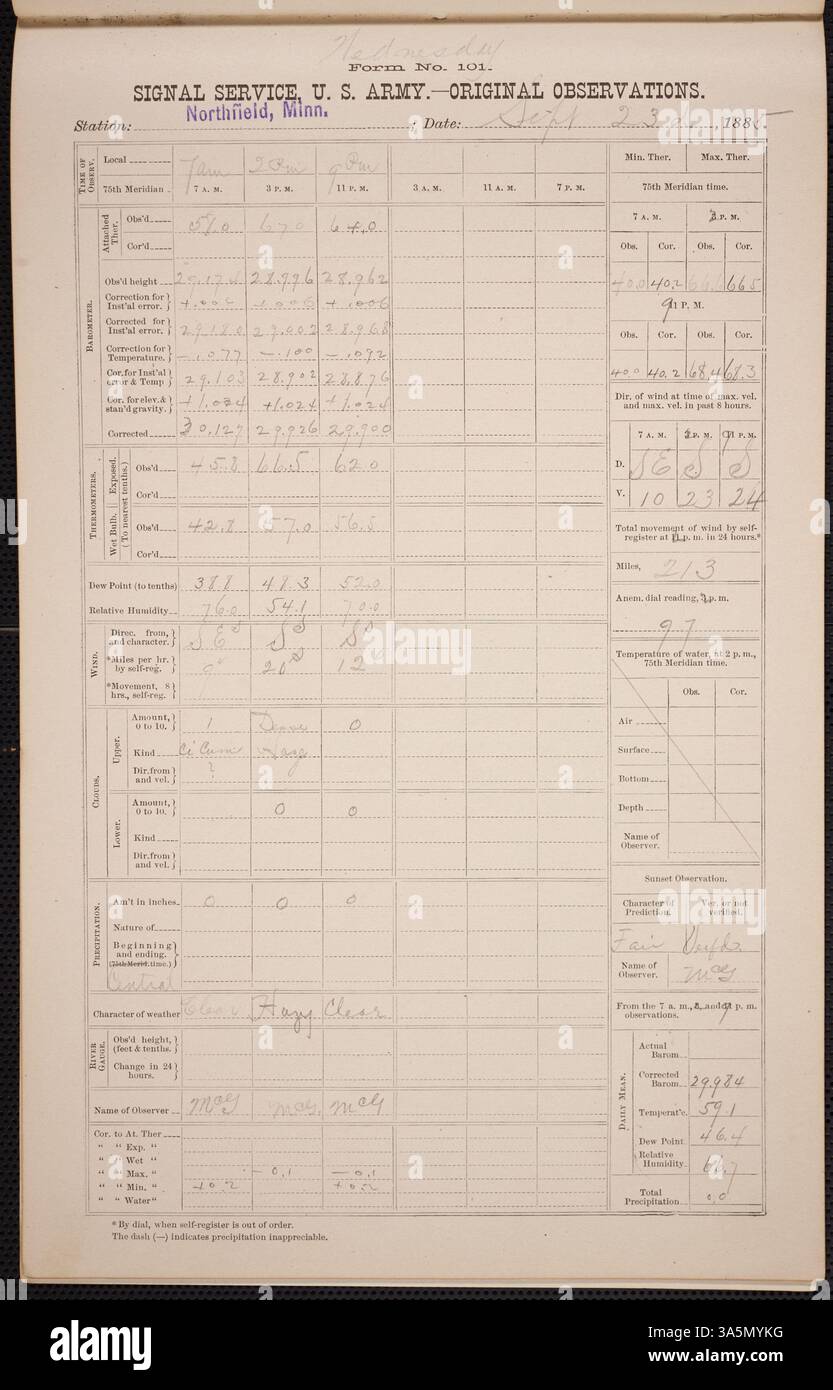 Wednesday
Form No. 101.
SIGNAL SERVICE, U. S. ARMY.—ORIGINAL OBSERVATIONS.
Station: Northfield, Minn. ; Date: Sept 23rd, 1885.
TIME OF OBSERV.
Local 7am 2 Pm 9 Pm
75th Meridian 7 A. M. 3 P. M. 11 P. M. 3 A. M. 11 A. M. 7 P. M.
BAROMETER.
Attached Ther.
Obs'd 51.0 67.0 64.0
Cor'd
Obs'd height 29.174 28.996 28.962
Correction for Inst'al error. +.006 +.006 +.006
Corrected for Inst'al error. 29.180 29.002 28.968
Correction for Temperature. -.077 -.100 -.092
Cor. for Inst'al error & Temp 29.103 28.902 28.876
Cor. for elev. & stan'd gravity. +1.024 +1.024 +1.024
Corrected 30.127 29.926 29.900
THERMOMETERS.
(To nearest tenths.)
Exposed.
Obs'd 45.8 66.5 62.0
Cor'd
Wet Bulb.
Obs'd 42.8 57.0 56.5
Cor'd
Dew Point (to tenths) 38.8 48.3 52.0
Relative Humidity 76.0 54.1 70.0
WIND.
Direc. from, and character. SE S S
*Miles per hr. by self-reg. 9 20 12
*Movement, 8 hrs., self-reg.
CLOUDS.
Upper.
Amount, 0 to 10. 1 Dense 0
Kind Ci Cum Haze
Dir. from and vel. ?
Lower.
Amount, 0 to 10. 0 0
Kind
Dir. from and vel.
PRECIPITATION.
Am't in inches 0 0 0
Nature of
Beginning and ending. (75th Merid. time.)
Central
Character of weather Clear Hazy Clear
RIVER GAUGE.
Obs'd height, (feet & tenths.
Change in 24 hours.
Name of Observer McG McG. McG
Cor. to At. Ther
" " Exp. "
" " Wet "
" " Max. " -0.1 -0.1
" " Min. " +0.2 +0.2
" " Water "
* By dial, when self-register is out of order.
The dash (—) indicates precipitation inappreciable.
Min. Ther. Max. Ther.
75th Meridian time.
7 A. M. 3 P. M.
Obs. Cor. Obs. Cor.
40.0 40.2 66.6 66.5
9 11 P. M.
Obs. Cor. Obs. Cor.
40.0 40.2 68.4 68.3
Dir. of wind at time of max. vel. and max. vel. in past 8 hours.
7 A. M. 3 P. M. 9 11 P. M.
D. SE S S
V. 10 23 24
Total movement of wind by self-register at 11 p. m. in 24 hours.*
Miles, 213
Anem. dial reading, 3 p. m.
97
Temperature of water, at 2 p. m., 75th Meridian time.
Obs. Cor.
Air
Surface
Bottom
Depth
Name of Observer.
Sunset Observation.
Character of Prediction. Ver. or not verified.
Fair Verifd.
Name of Observer. McG
From the 7 a. m., 3, and 11 9 p. m. observations.
DAILY MEAN.
Actual Barom
Corrected Barom 29.984
Temperat'e. 59.1
Dew Point 46.4
Relative Humidity
Total Precipitation 0.0
alamy
alamy
alamy
alamy
alamy
Image ID: 3A5MYKG
www.alamy.com